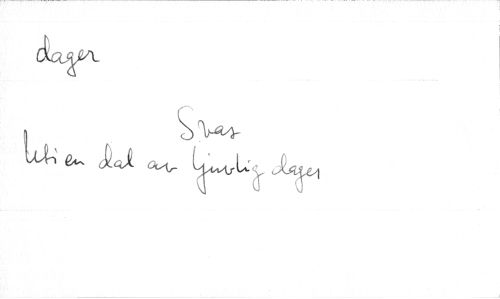 dager
S. vas
Uti en dal av ljuvlig dager